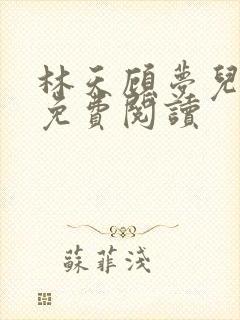 林天顧夢兒
免費閱讀
蘇菲淺